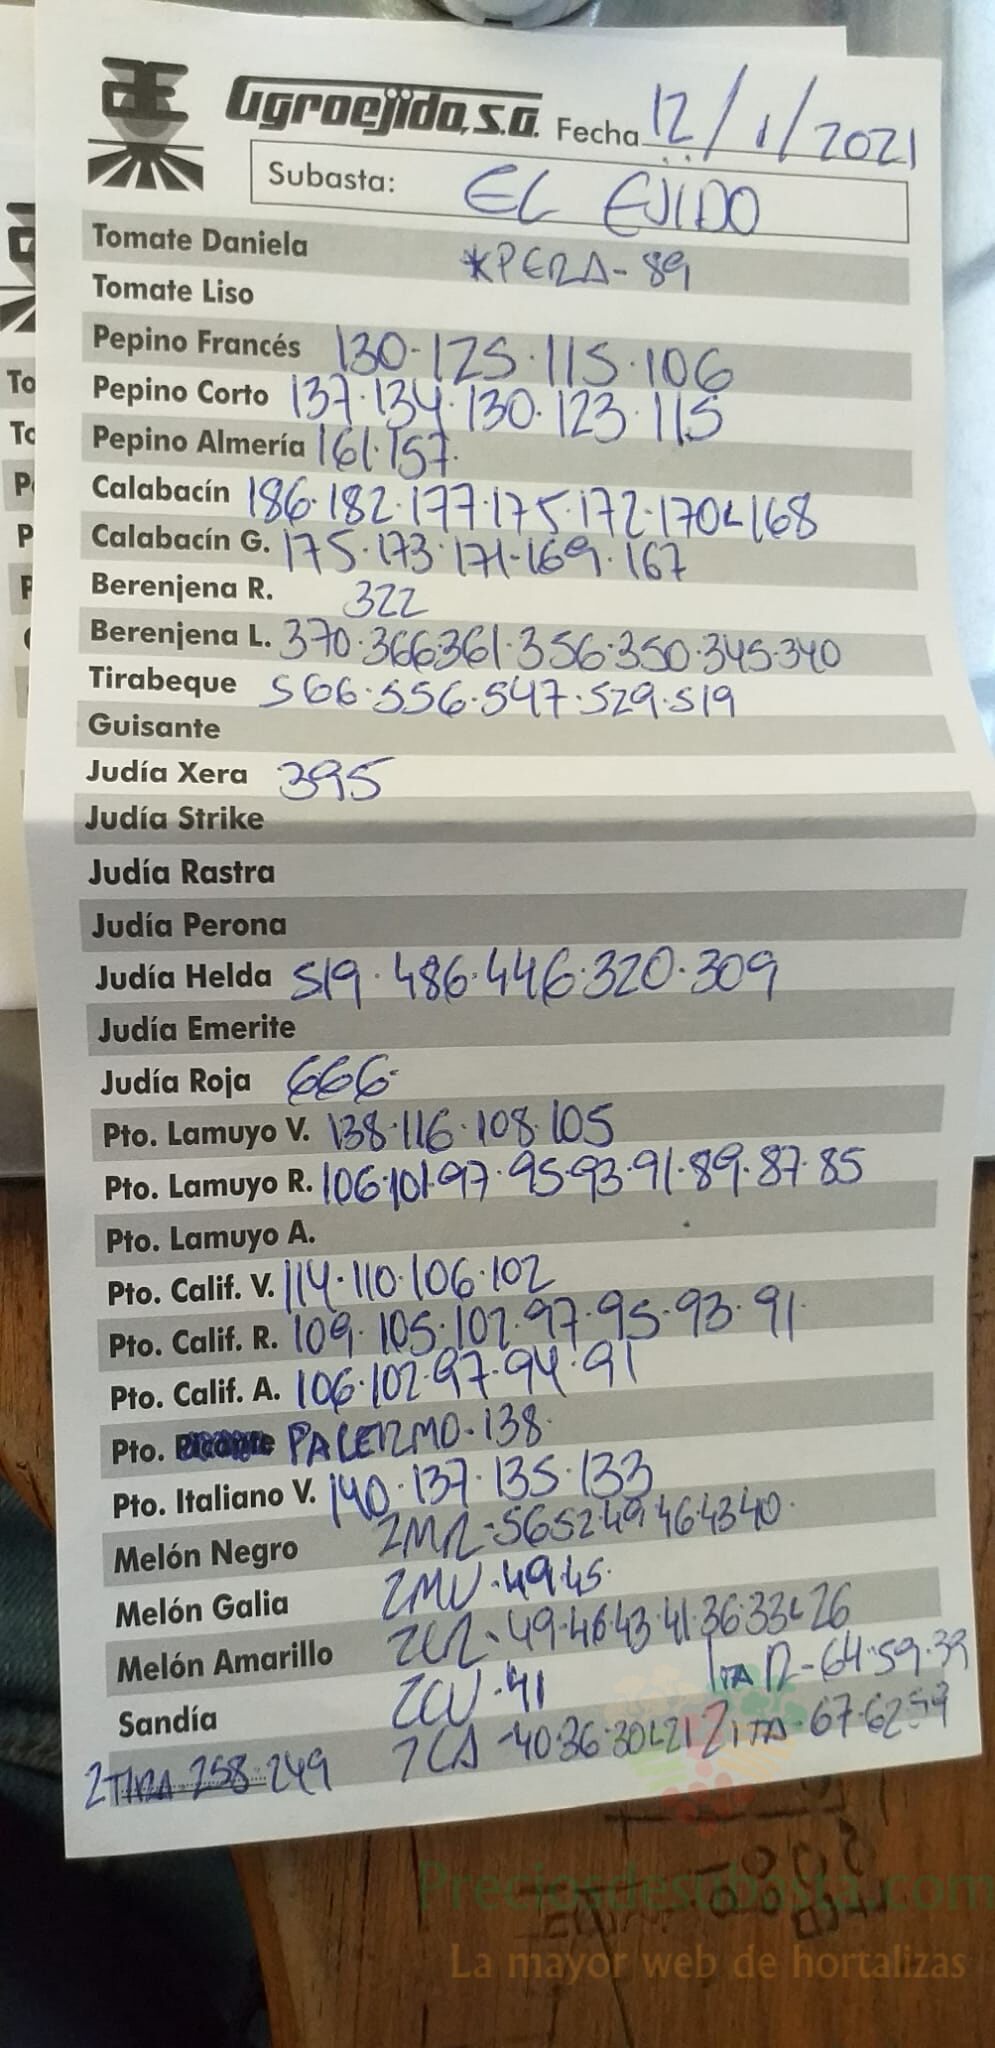 Agroejido, S.A. Fecha 12/1/2021
Subasta: EL EJIDO
Tomate Daniela *PERA-89
Tomate Liso
Pepino Francés 130-125.115.106
Pepino Corto 137.134.130.123.115
Pepino Almería 161.157.
Calabacín 186.182.177.175.172.170L168
Calabacín G. 175.173.171-169.167
Berenjena R. 322
Berenjena L. 370.366.361.356.350.345.340
Tirabeque 566.556.547.529.519
Guisante
Judía Xera 395
Judía Strike
Judía Rastra
Judía Perona
Judía Helda 519.486.446.320.309
Judía Emerite
Judía Roja 666.
Pto. Lamuyo V. 138.116.108.105
Pto. Lamuyo R. 106.101.97.95.93.91.89.87.85
Pto. Lamuyo A.
Pto. Calif. V. 114.110.106.102
Pto. Calif. R. 109.105.102.97.95.93.91.
Pto. Calif. A. 106.102.97.94.91
Pto. PALERMO.138.
Pto. Italiano V. 140.137.135.133
Melón Negro 2MR-56.52.49.46.43.40.
Melón Galia 2MV.49.45.
Melón Amarillo 2CR-49.46.43.41.36.33L26
Sandía 2CV.41 ITAR-64.59.39
2TIRA 258.249 2CA-40.36.30L21 2ITA-67.62.59
To
To
Preciosdesubasta.com
La mayor web de hortalizas